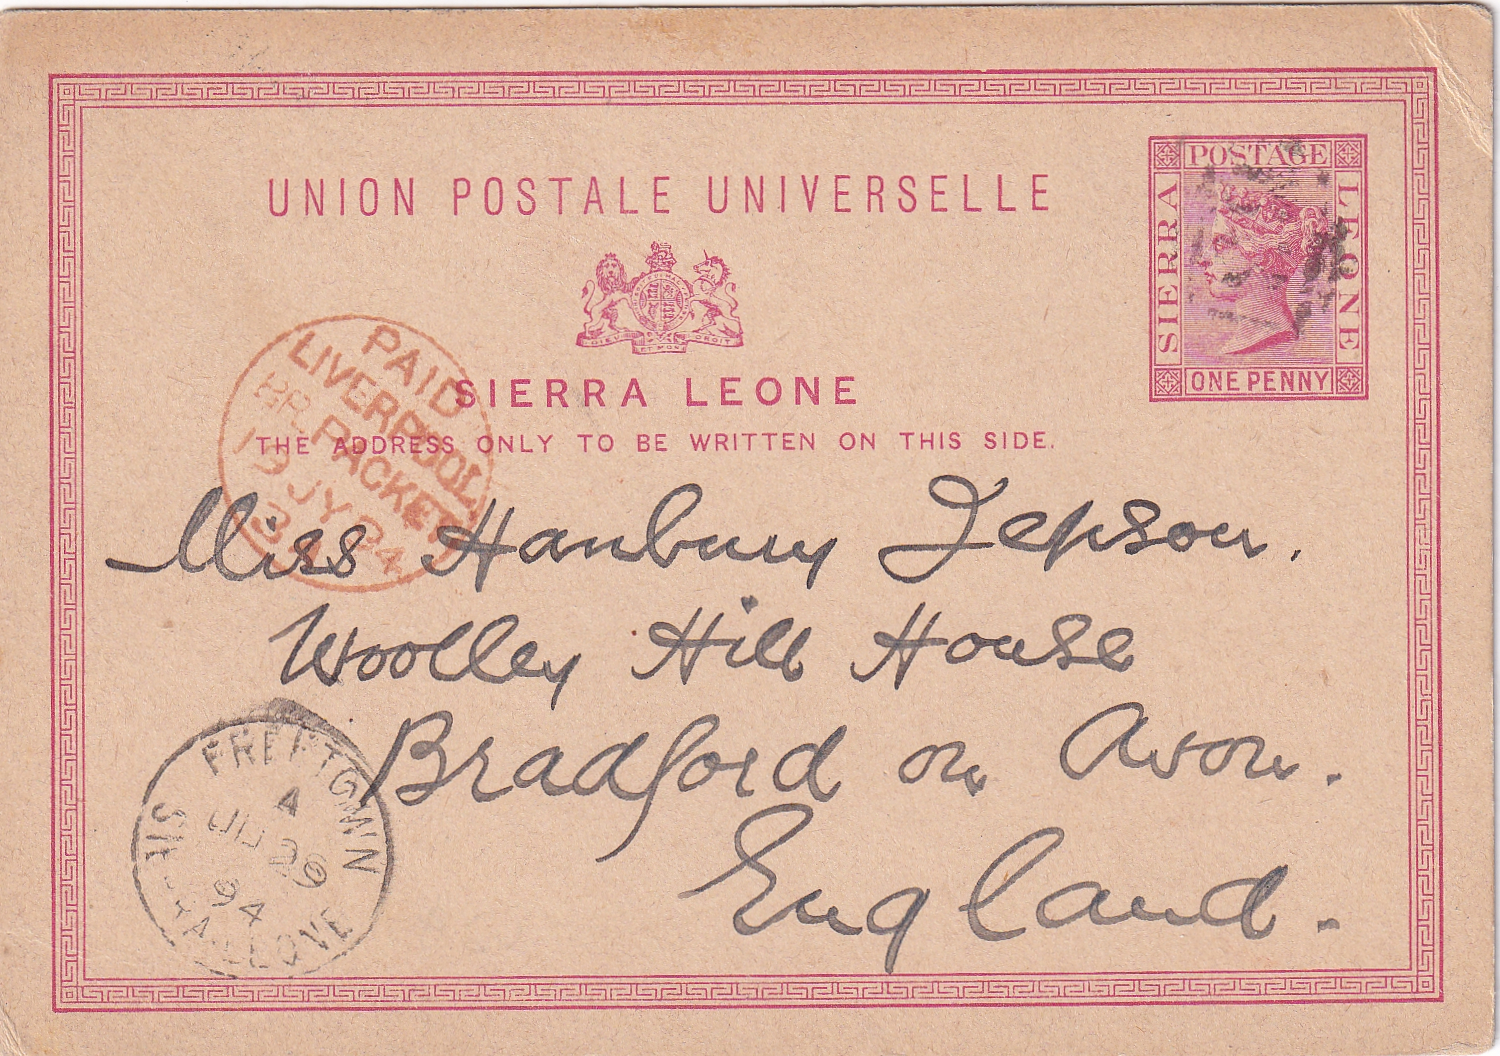 UNION POSTALE UNIVERSELLE
POSTAGE
SIERRA
LEONE
ONE PENNY
DIEU ET MON DROIT
SIERRA LEONE
THE ADDRESS ONLY TO BE WRITTEN ON THIS SIDE.
PAID
LIVERPOOL
BR. PACKET
19 JY 94
Miss Hanbury Jepson.
Woolley Hill House
Bradford on Avon.
England.
FREETOWN
A
94